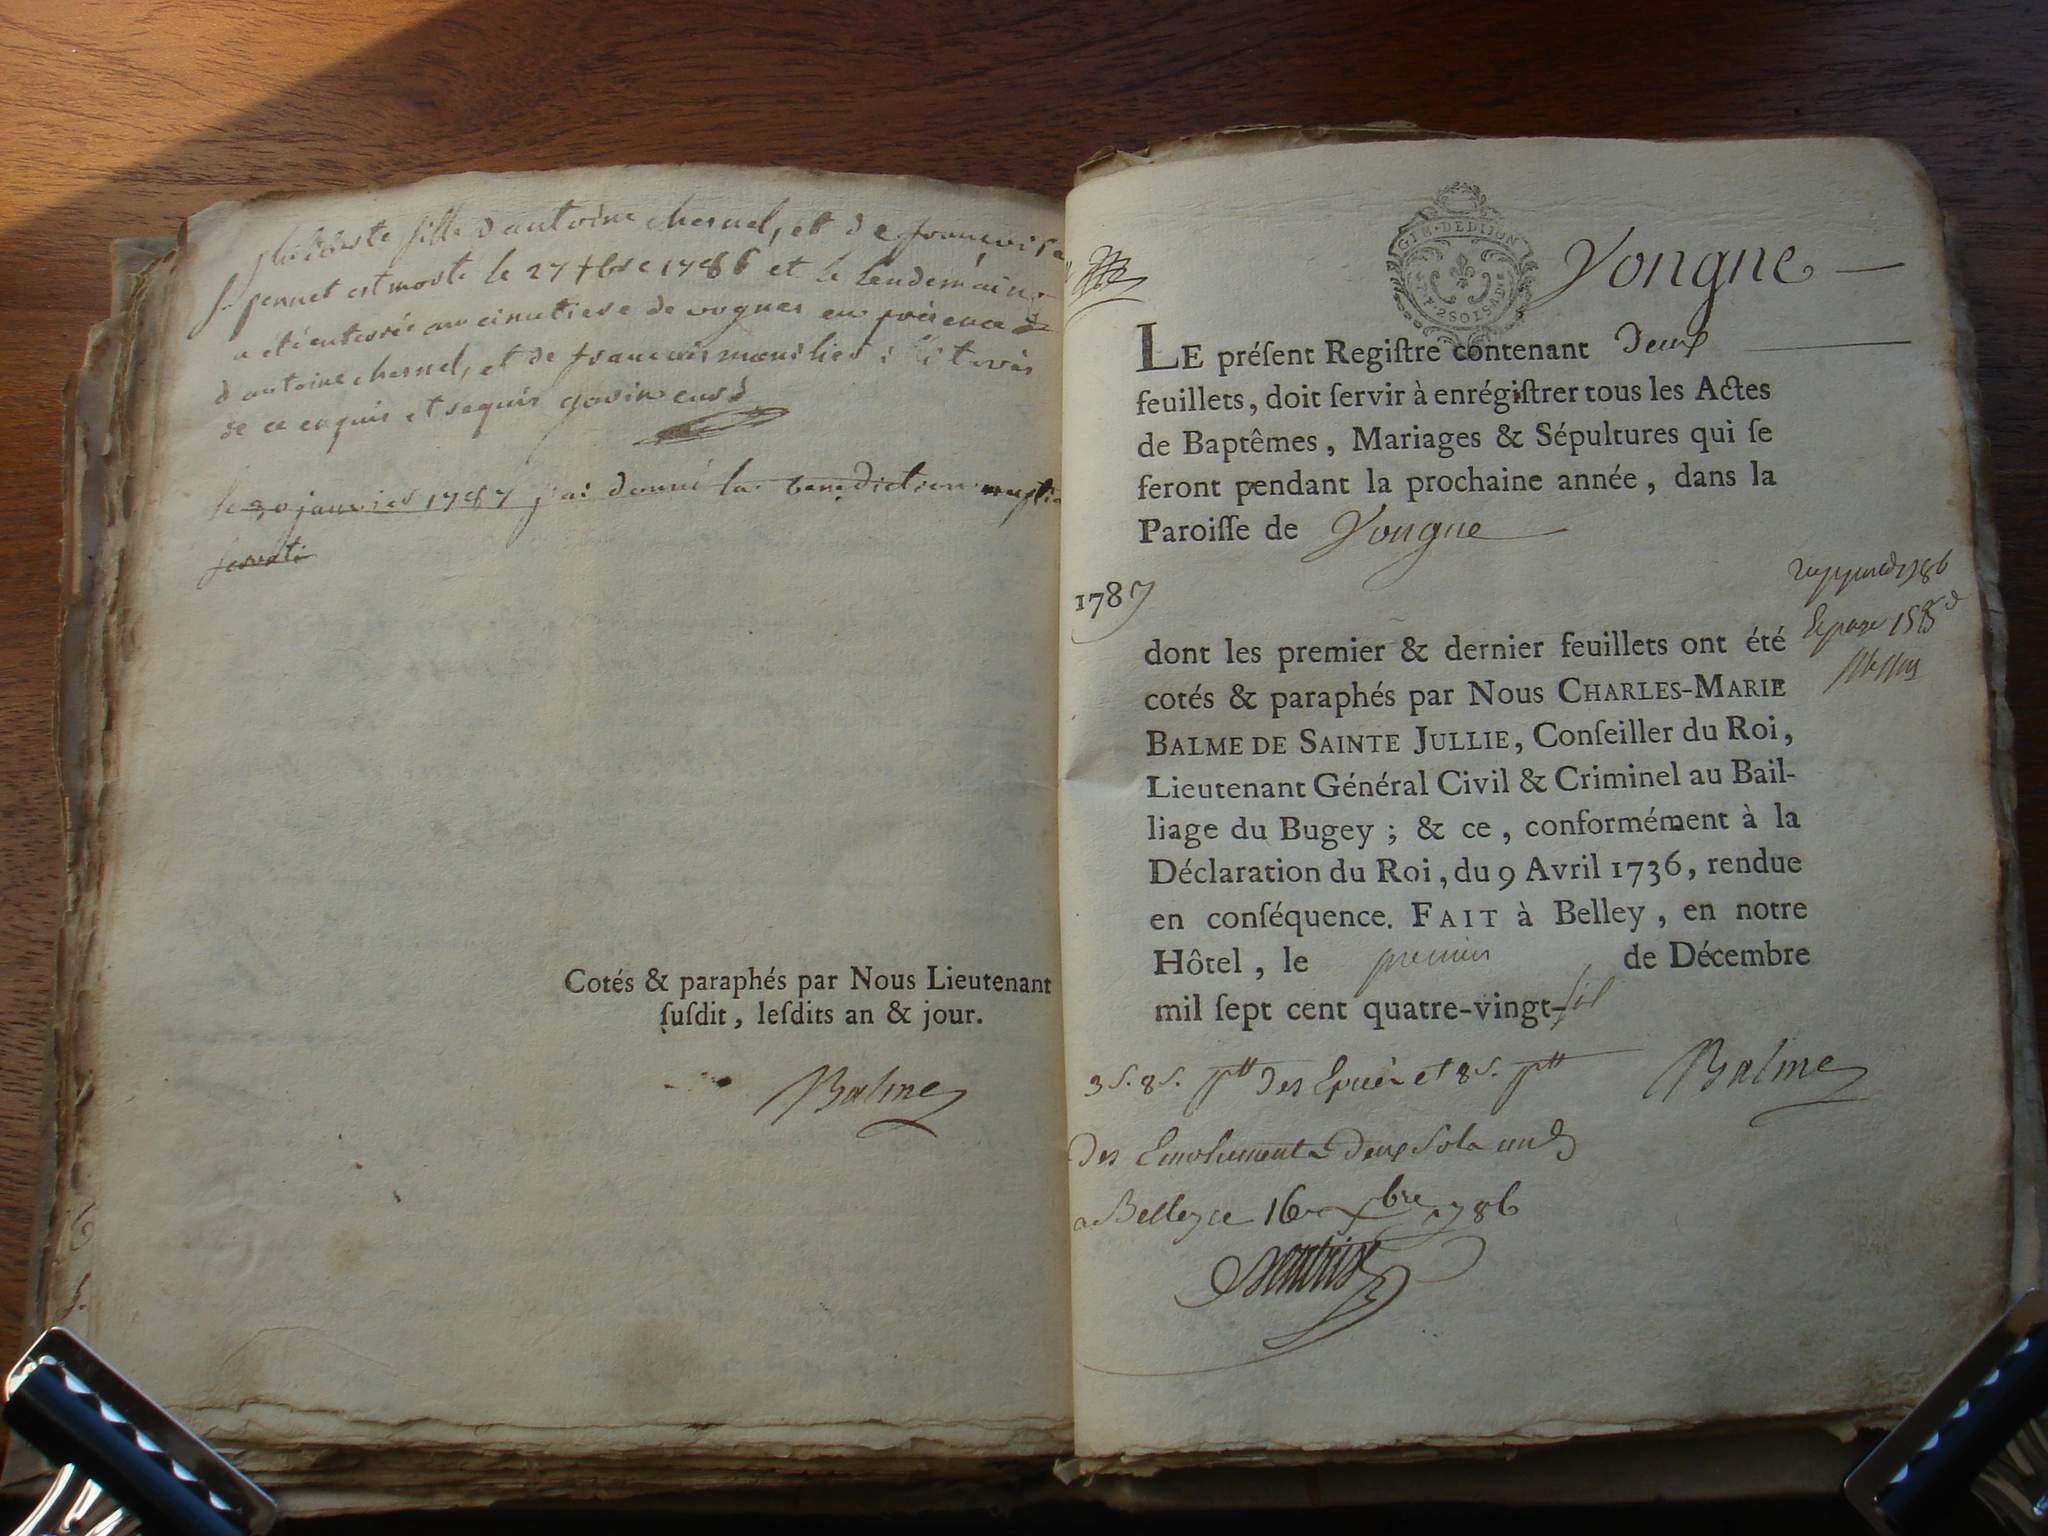 fille d'antoine chesnel, et de françoise
pennet est morte le 27 xbre 1786 et le lendemain
a eté enterrée au cimetiere de vognes en présence de
d'antoine chesnel, et de françois
de ce enquis et requis
le 30 janvier 1787 j'ai donné la benediction nuptia
Cotés & paraphés par Nous Lieutenant
ſuſdit, leſdits an & jour.
Balme
GEN. DE DIJON
Yongne
LE préſent Regiſtre contenant Deux
feuillets, doit ſervir à enrégiſtrer tous les Actes
de Baptêmes, Mariages & Sépultures qui ſe
feront pendant la prochaine année, dans la
Paroiſſe de Yongne
1787
dont les premier & dernier feuillets ont été
cotés & paraphés par Nous CHARLES-MARIE
BALME DE SAINTE JULLIE, Conſeiller du Roi,
Lieutenant Général Civil & Criminel au Bail-
liage du Bugey ; & ce, conformément à la
Déclaration du Roi, du 9 Avril 1736, rendue
en conſéquence. FAIT à Belley, en notre
Hôtel, le premier de Décembre
mil ſept cent quatre-vingt-ſix
Balme
des Emoluments Deux Sols
a Belley ce 16 xbre 1786